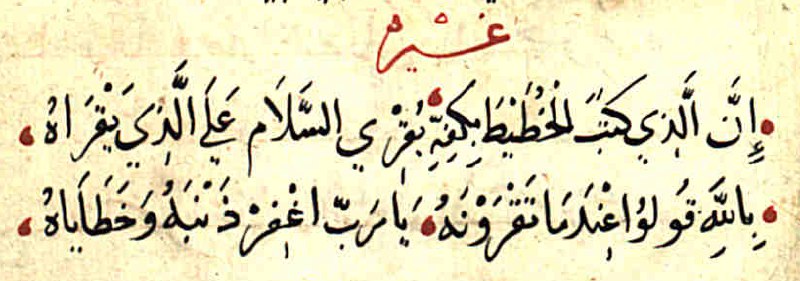 غيره
إِنَّ الَّذِي كَتَبَ الْخُطَيْطَ بِكَفِّهِ يُقْرِي السَّلَامَ عَلَى الَّذِي يَقْرَاهُ
بِاللَّهِ قُولُوا عِنْدَمَا تَقْرَوْنَهُ يَا رَبِّ اغْفِرْ ذَنْبَهُ وَخَطَايَاهُ